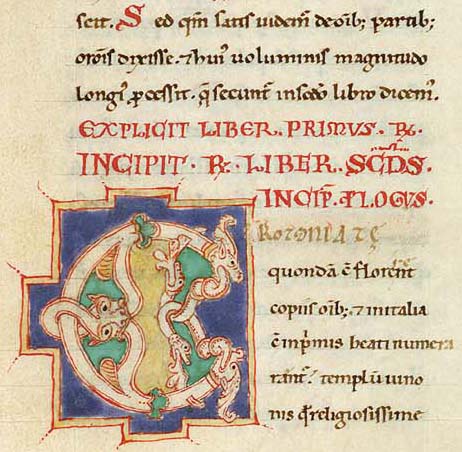 scit. Sed qm̄ satis uidem̄ de oīb; partib;
orōnis dixisse. & hui᾽ uoluminis magnitudo
longi᾽ ꝓcessit. q̄ secunt̄ in scd̄o libro dicem᾽.
EXPLICIT LIBER. PRIMUS. R̄.
INCIPIT. R̄. LIBER. SC̄DS.
INCIP̄. PLOGUS.
CROTONIATĘ
quondā c̄ florent̄
copiis oīb; & in italia
c̄ inp̄mis beati numera
rant᾽. templū iuno
nis q̄ religiosissime